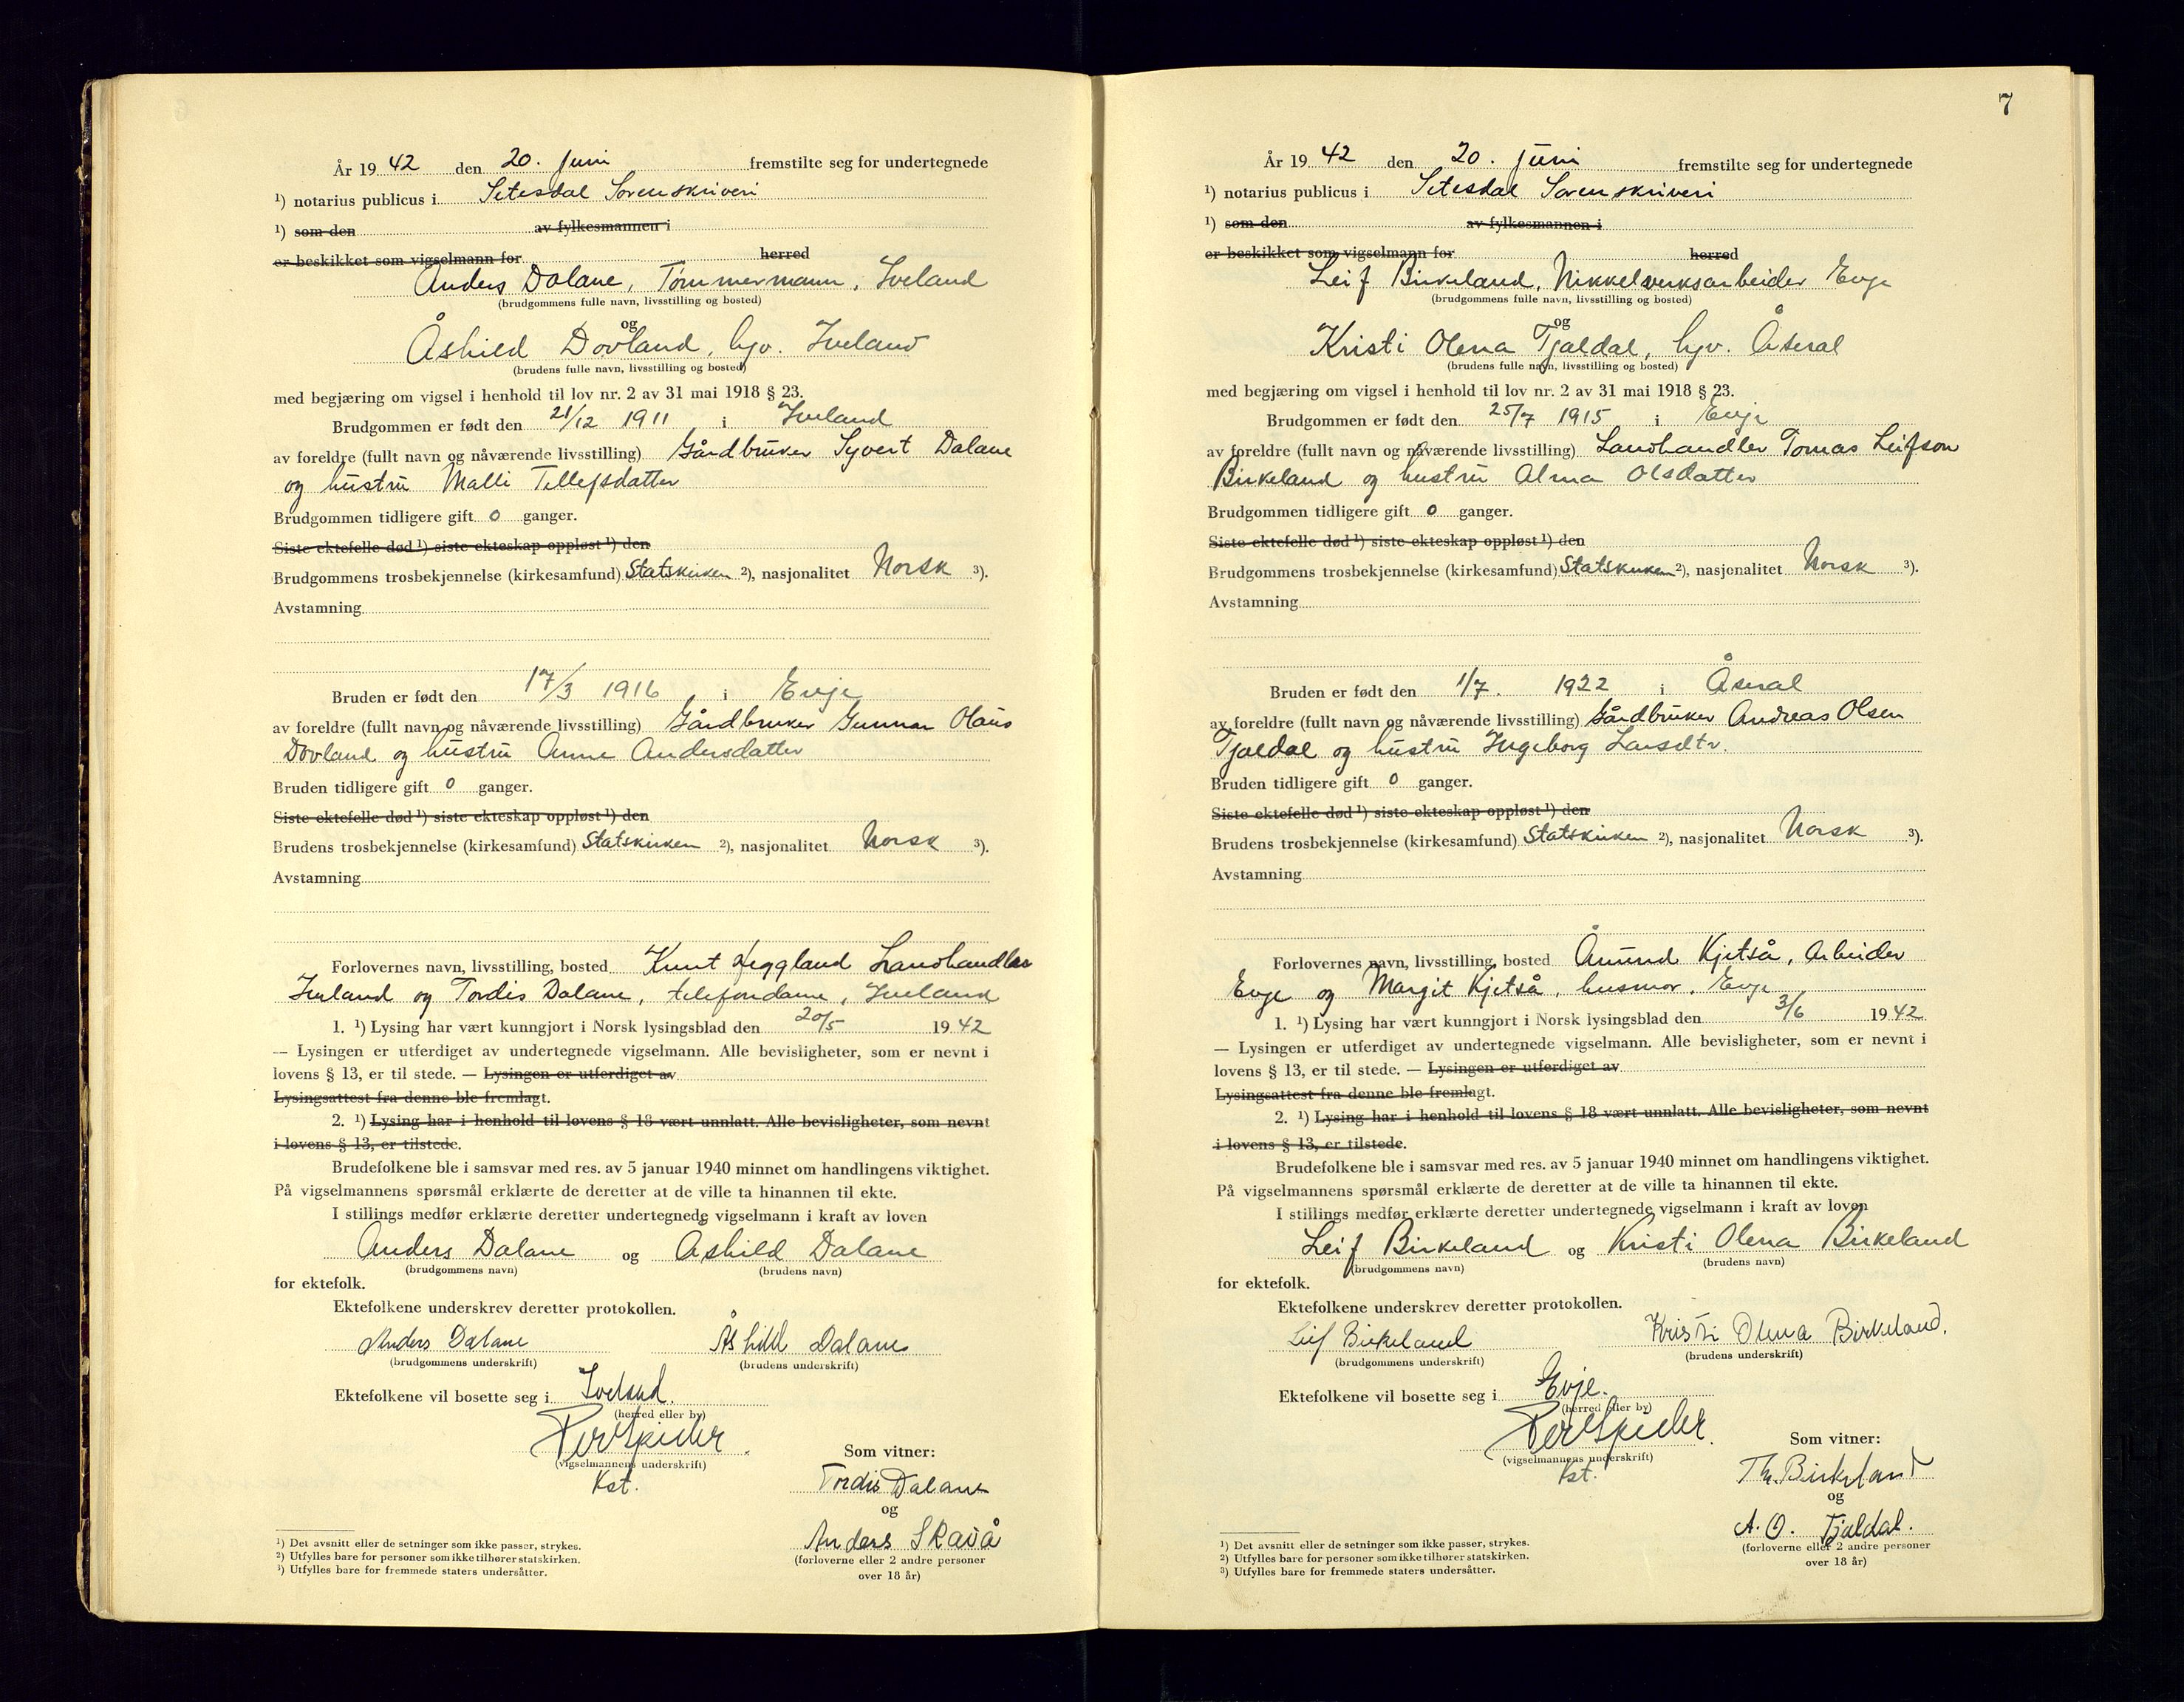 År 1942 den 20. Juni fremstilte seg for undertegnede
¹) notarius publicus i Setesdal Sorenskriveri
¹) som den av fylkesmannen i
er beskikket som vigselmann for herred
Anders Dalane, Tømmermann, Iveland
(brudgommens fulle navn, livsstilling og bosted)
og
Åshild Dovland, hjv. Iveland
(brudens fulle navn, livsstilling og bosted)
med begjæring om vigsel i henhold til lov nr. 2 av 31 mai 1918 § 23.
Brudgommen er født den 21/12 1911 i Iveland
av foreldre (fullt navn og nåværende livsstilling) Gårdbruker Syvert Dalane
og hustru Malli Tellefsdatter
Brudgommen tidligere gift 0 ganger.
Siste ektefelle død ¹) siste ekteskap oppløst ¹) den
Brudgommens trosbekjennelse (kirkesamfund) Statskirken ²), nasjonalitet Norsk ³).
Avstamning
Bruden er født den 17/3 1916, i Evje
av foreldre (fullt navn og nåværende livsstilling) Gårdbruker Gunnar Olaus
Dovland og hustru Anne Andersdatter
Bruden tidligere gift 0 ganger.
Siste ektefelle død ¹) siste ekteskap oppløst ¹) den
Brudens trosbekjennelse (kirkesamfund) Statskirken ²), nasjonalitet Norsk ³).
Avstamning
Forlovernes navn, livsstilling, bosted Knut Heggland Landhandler
Iveland og Tordis Dalane, telefondame, Iveland
1. ¹) Lysing har vært kunngjort i Norsk lysingsblad den 20/5 1942
— Lysingen er utferdiget av undertegnede vigselmann. Alle bevisligheter, som er nevnt i
lovens § 13, er til stede. — Lysingen er utferdiget av
Lysingsattest fra denne ble fremlagt.
2. ¹) Lysing har i henhold til lovens § 18 vært unnlatt. Alle bevisligheter, som nevnt
i lovens § 13, er tilstede.
Brudefolkene ble i samsvar med res. av 5 januar 1940 minnet om handlingens viktighet.
På vigselmannens spørsmål erklærte de deretter at de ville ta hinannen til ekte.
I stillings medfør erklærte deretter undertegnede vigselmann i kraft av loven
Anders Dalane og Åshild Dalane
(brudgommens navn) (brudens navn)
for ektefolk.
Ektefolkene underskrev deretter protokollen.
Anders Dalane Åshild Dalane
(brudgommens underskrift) (brudens underskrift)
Ektefolkene vil bosette seg i Iveland.
(herred eller by)
(vigselmannens underskrift)
Kst.
Som vitner:
Tordis Dalane
og
Anders Skaiå
(forloverne eller 2 andre personer
over 18 år)
¹) Det avsnitt eller de setninger som ikke passer, strykes.
²) Utfylles bare for personer som ikke tilhører statskirken.
³) Utfylles bare for fremmede staters undersåtter.
7
År 1942 den 20. Juni fremstilte seg for undertegnede
¹) notarius publicus i Setesdal Sorenskriveri
¹) som den av fylkesmannen i
er beskikket som vigselmann for herred
Leif Birkeland, Nikkelverksarbeider Evje
(brudgommens fulle navn, livsstilling og bosted)
og
Kristi Olena Tjaldal, hjv. Åseral
(brudens fulle navn, livsstilling og bosted)
med begjæring om vigsel i henhold til lov nr. 2 av 31 mai 1918 § 23.
Brudgommen er født den 25/7 1915 i Evje
av foreldre (fullt navn og nåværende livsstilling) Landhandler Tomas Leifson
Birkeland og hustru Alma Olsdatter
Brudgommen tidligere gift 0 ganger.
Siste ektefelle død ¹) siste ekteskap oppløst ¹) den
Brudgommens trosbekjennelse (kirkesamfund) Statskirken ²), nasjonalitet Norsk ³).
Avstamning
Bruden er født den 1/7. 1922 i Åseral
av foreldre (fullt navn og nåværende livsstilling) Gårdbruker Andreas Olsen
Tjaldal og hustru Ingeborg Larsdtr.
Bruden tidligere gift 0 ganger.
Siste ektefelle død ¹) siste ekteskap oppløst ¹) den
Brudens trosbekjennelse (kirkesamfund) Statskirken ²), nasjonalitet Norsk ³).
Avstamning
Forlovernes navn, livsstilling, bosted Åmund Kjetså, Arbeider
Evje og Margit Kjetså, husmor, Evje
1. ¹) Lysing har vært kunngjort i Norsk lysingsblad den 3/6 1942.
— Lysingen er utferdiget av undertegnede vigselmann. Alle bevisligheter, som er nevnt i
lovens § 13, er til stede. — Lysingen er utferdiget av
Lysingsattest fra denne ble fremlagt.
2. ¹) Lysing har i henhold til lovens § 18 vært unnlatt. Alle bevisligheter, som nevnt
i lovens § 13, er tilstede.
Brudefolkene ble i samsvar med res. av 5 januar 1940 minnet om handlingens viktighet.
På vigselmannens spørsmål erklærte de deretter at de ville ta hinannen til ekte.
I stillings medfør erklærte deretter undertegnede vigselmann i kraft av loven
Leif Birkeland og Kristi Olena Birkeland
(brudgommens navn) (brudens navn)
for ektefolk.
Ektefolkene underskrev deretter protokollen.
Leif Birkeland Kristi Olena Birkeland.
(brudgommens underskrift) (brudens underskrift)
Ektefolkene vil bosette seg i Evje.
(herred eller by)
(vigselmannens underskrift)
Kst.
Som vitner:
Th. Birkeland
og
A. O. Tjaldal.
(forloverne eller 2 andre personer
over 18 år)
¹) Det avsnitt eller de setninger som ikke passer, strykes.
²) Utfylles bare for personer som ikke tilhører statskirken.
³) Utfylles bare for fremmede staters undersåtter.